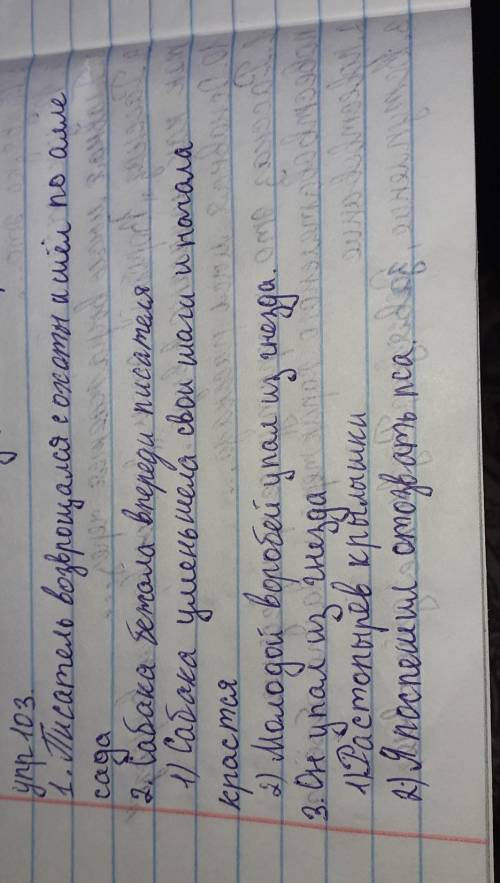 упр 103.
1. Писатель возврощался с охоты и шёл по алле
сада
2. Сабака бежала впереди писателя
1) Сабака уменьшела свои шаги и начала
крастся
2) Молодой воробей упал из гнезда.
3. Он упал из гнезда
1) Растопырев крылышки
2) Я поспешил отозвать пса.